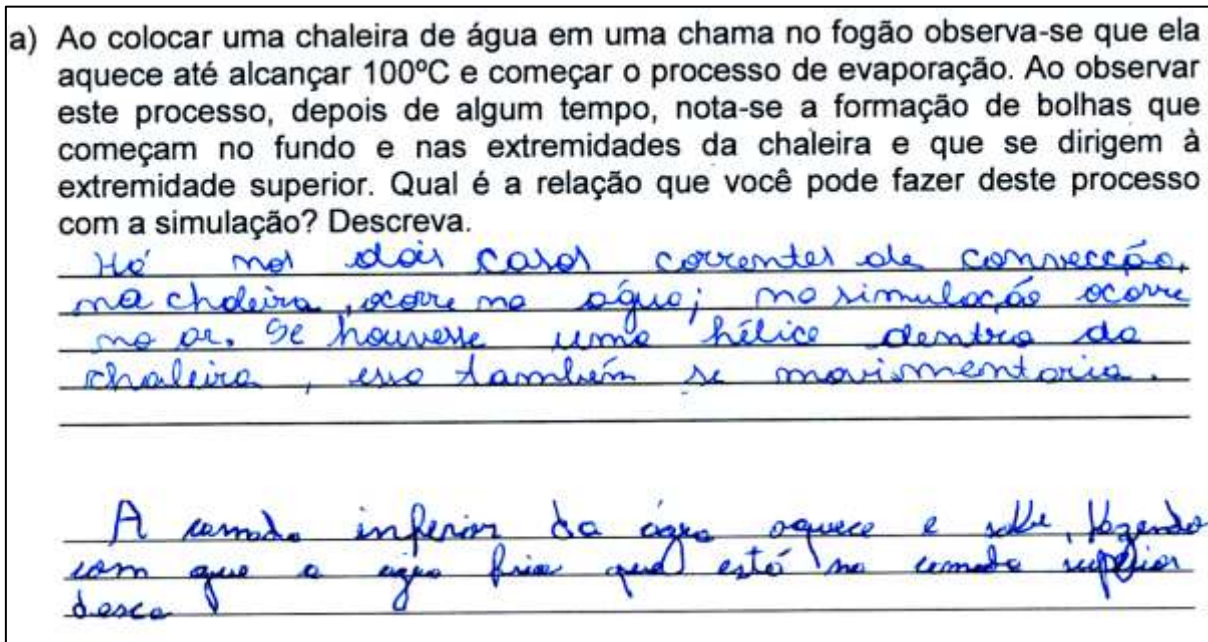 a) Ao colocar uma chaleira de água em uma chama no fogão observa-se que ela
aquece até alcançar 100ºC e começar o processo de evaporação. Ao observar
este processo, depois de algum tempo, nota-se a formação de bolhas que
começam no fundo e nas extremidades da chaleira e que se dirigem à
extremidade superior. Qual é a relação que você pode fazer deste processo
com a simulação? Descreva.
Há nos dois casos correntes de convecção,
na chaleira, ocorre na água; na simulação ocorre
no ar. Se houvesse uma hélice dentro da
chaleira, essa também se movimentaria.
A camada inferior da água aquece e sobe, fazendo
com que a água fria que está na camada superior
desca